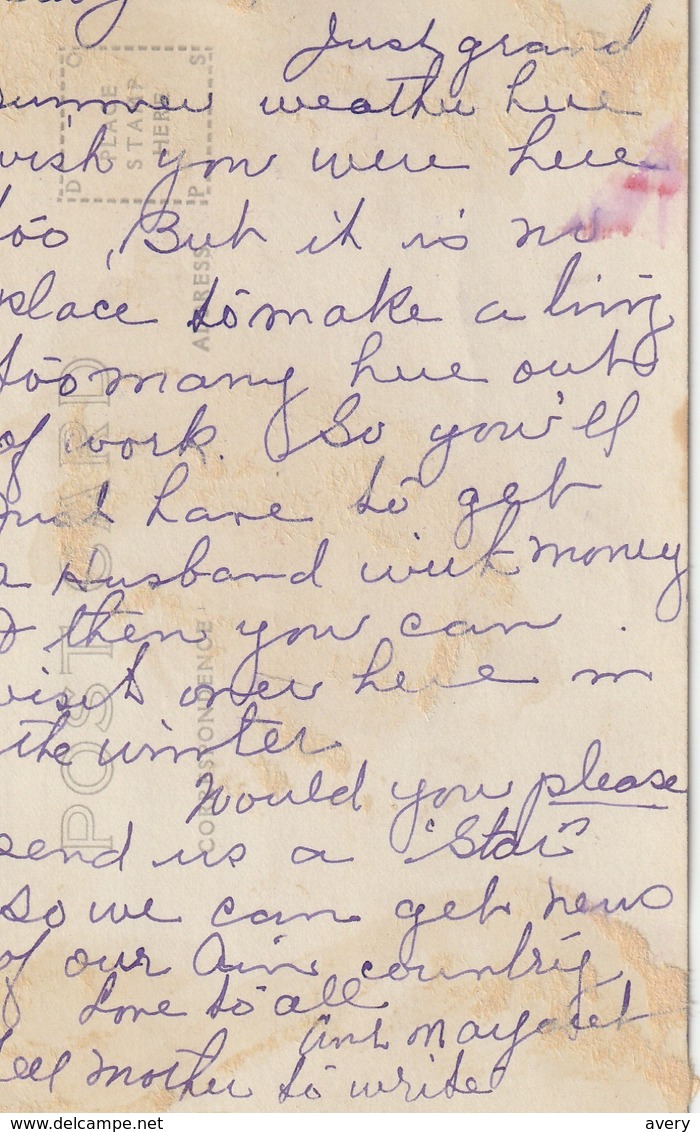 Just grand
summer weather here
wish you were here
too, But it is no
place to make a living
too many here out
of work. So you'll
just have to get
a Husband with money
& then you can
visit over here in
the winter
Would you please
send us a "Star"
so we can get news
of our Ain country
Love to all
Aunt Margaret
tell Mother to write
PLACE
STAMP
HERE
POST CARD
ADDRESS
CORRESPONDENCE
delcampe.net
avery